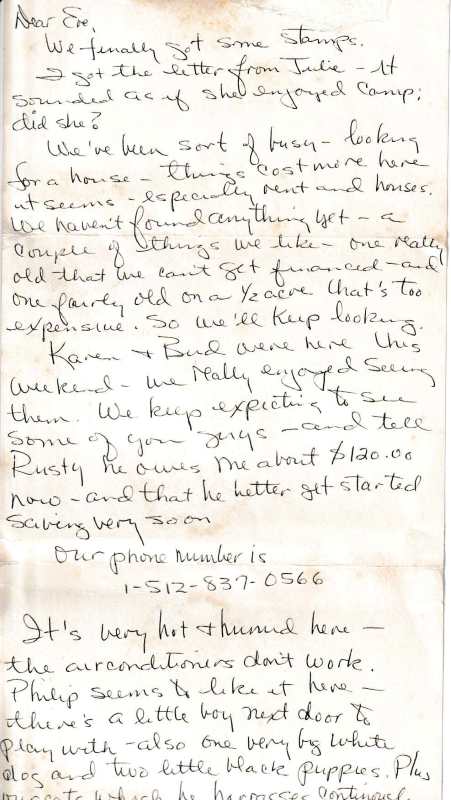 Dear Eve,
We finally got some stamps.
I got the letter from Julie - It
sounded as if she enjoyed camp;
did she?
We've been sort of busy - looking
for a house - things cost more here
it seems - especially rent and houses.
We haven't found anything yet - a
couple of things we like - one really
old that we can't get financed - and
one fairly old on a ½ acre that's too
expensive. So we'll keep looking.
Karen + Bud were here this
weekend - we really enjoyed seeing
them. We keep expecting to see
some of you guys - and tell
Rusty he owes me about $120.00
now - and that he better get started
saving very soon
Our phone number is
1-512-837-0566
It's very hot + humid here -
the airconditioners don't work.
Philip seems to like it here -
there's a little boy next door to
play with - also one very big white
dog and two little black puppies. Plus
our cats which he harasses continual.